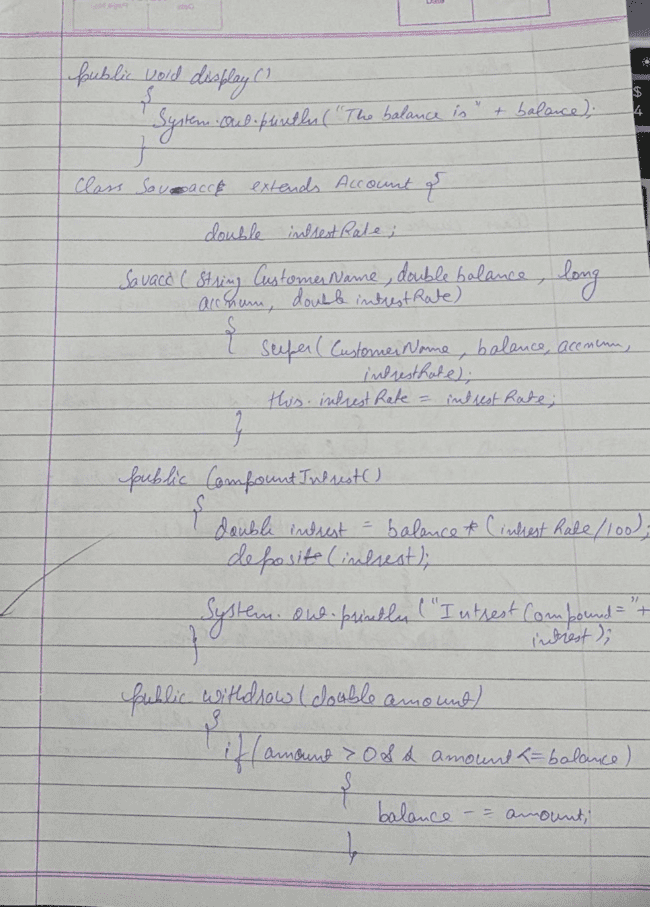 public void display()
{
System.out.println("The balance is" + balance);
}
Class Savacct extends Account {
double intrestRate;
Savacc(String CustomerName, double balance, long
accnum, double intrestRate)
{
super(CustomerName, balance, accnum,
intrestRate);
this.intrestRate = intrestRate;
}
public CompountIntrest()
{
double intrest = balance * (intrest Rate/100);
deposite(intrest);
System.out.println("Intrest Compound="+
intrest);
}
public withdraw(double amount)
{
if(amount > 0 && amount <= balance)
{
balance -= amount;
}